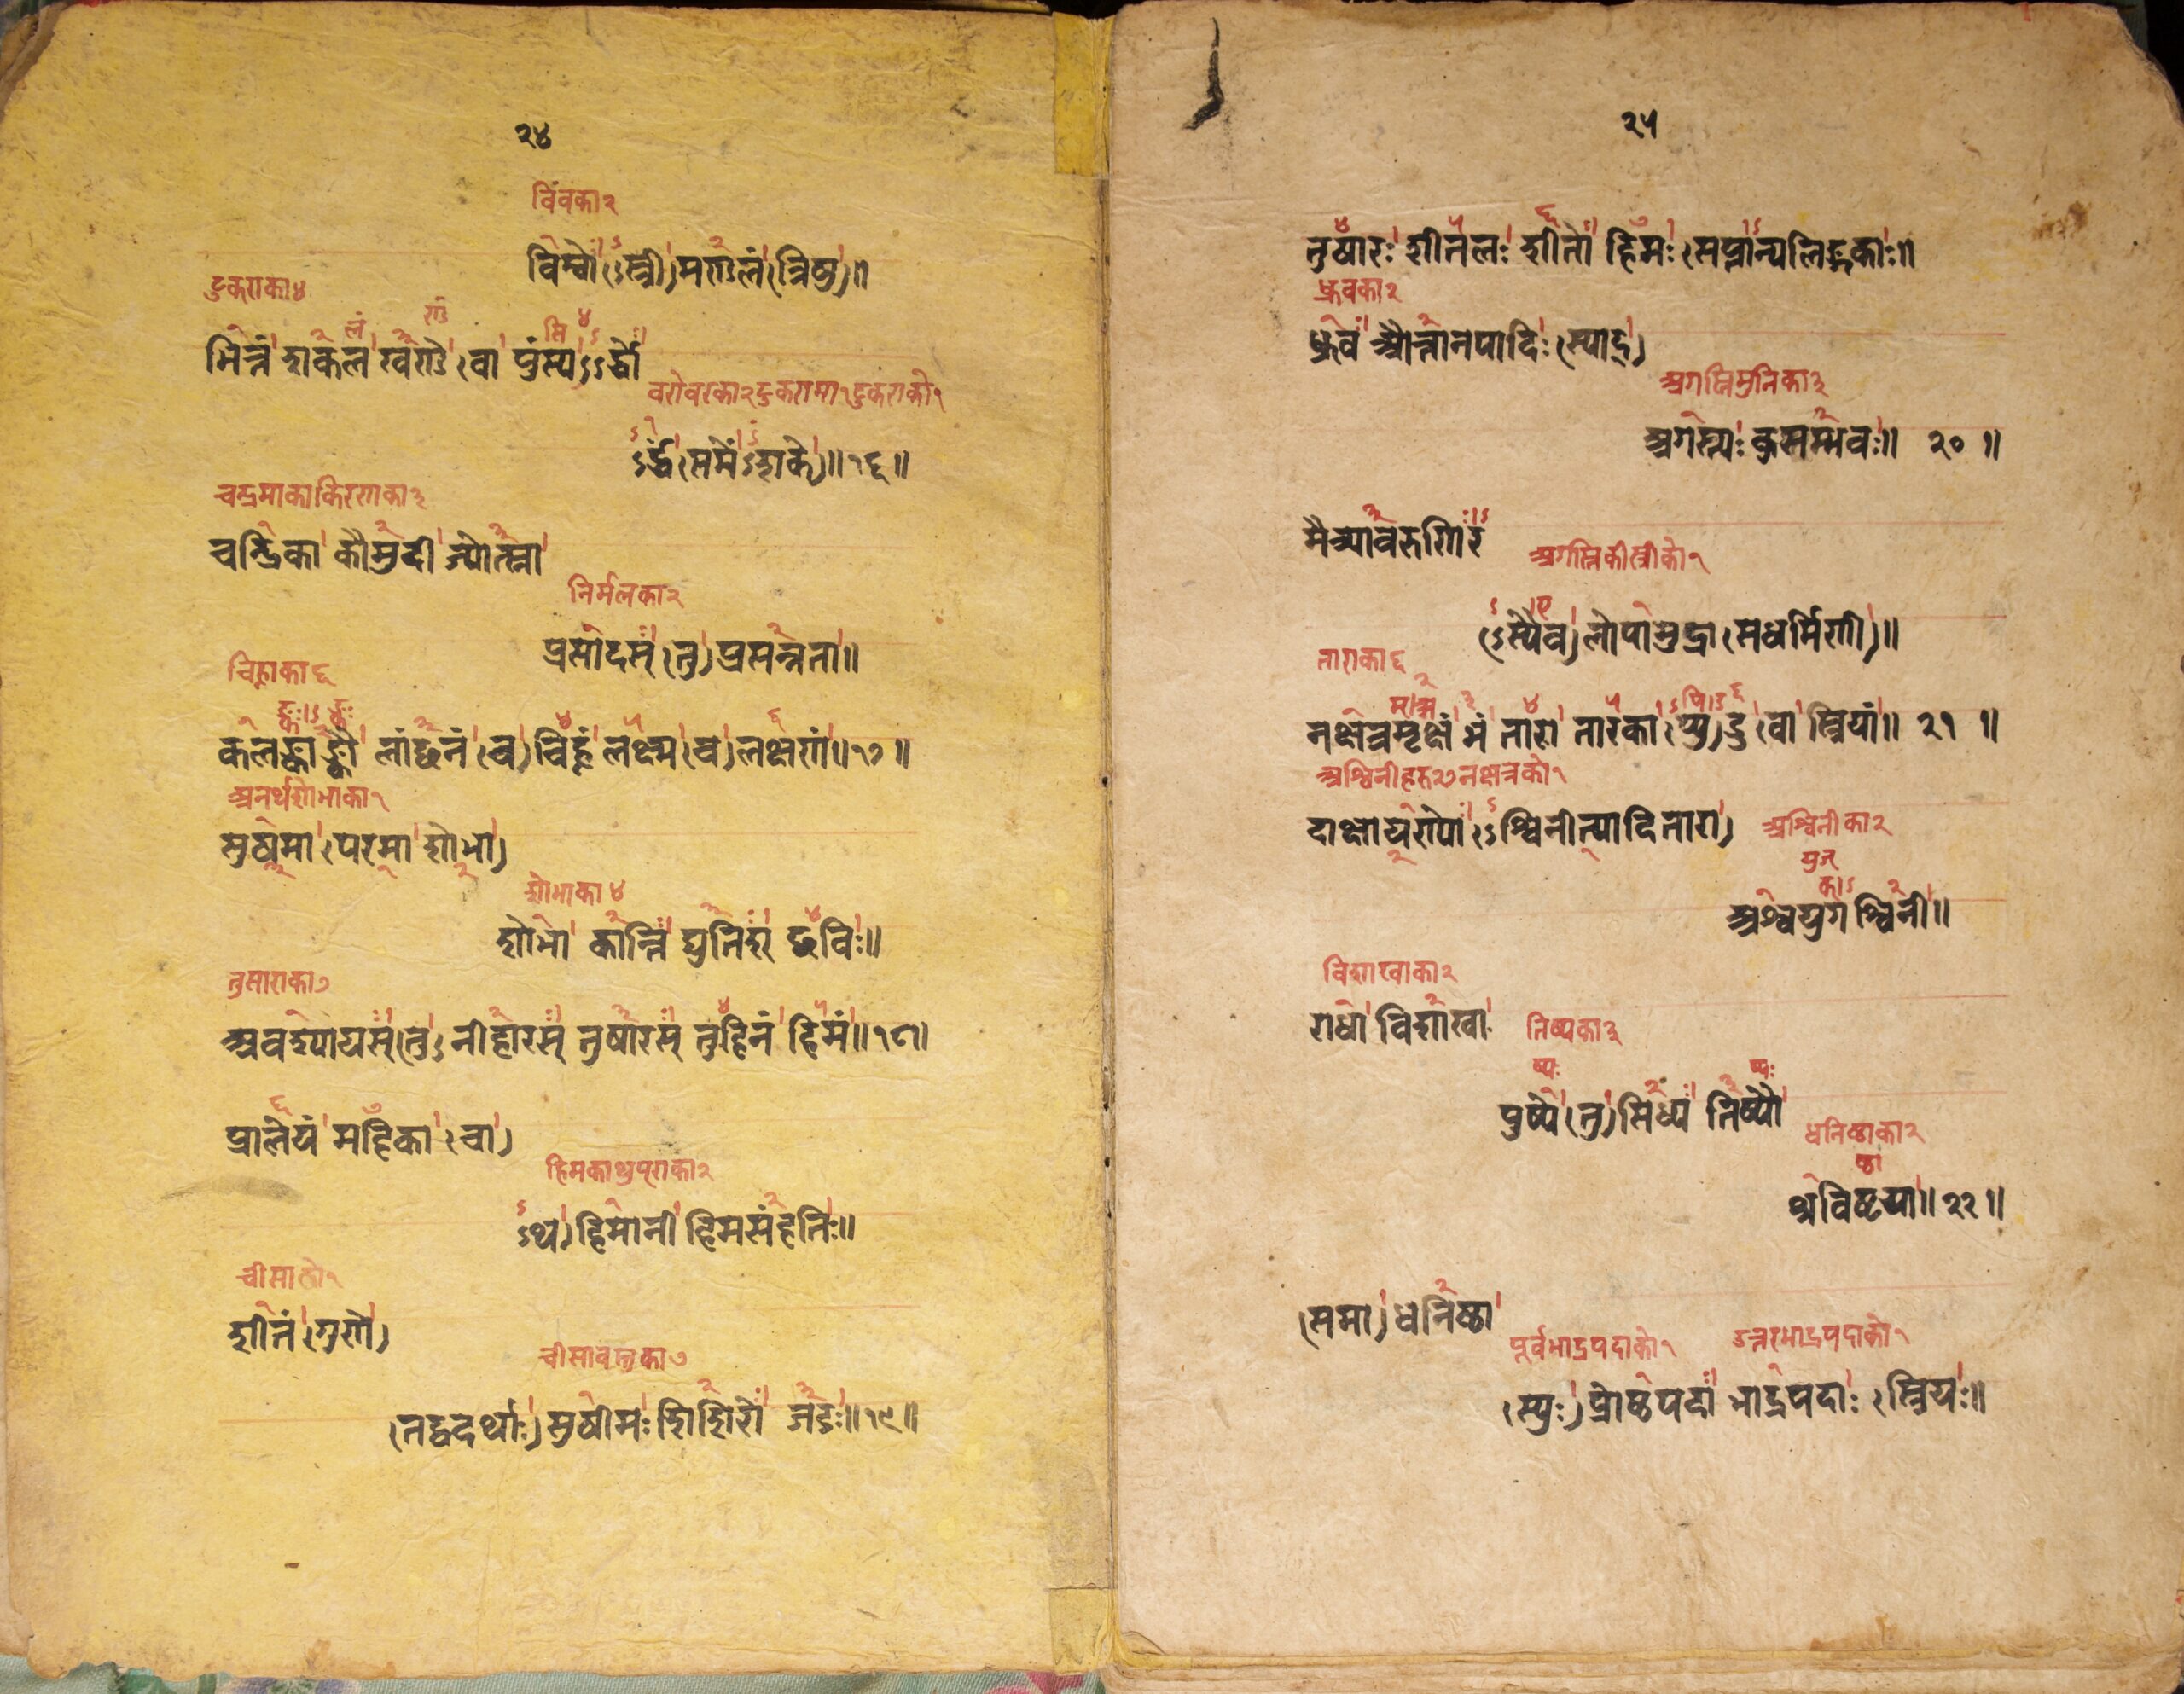 २४
विंवका२
विम्बो ऽस्त्री) मण्डलं (त्रिषु)॥
टुकराका४
भित्तं शकल खण्डे (वा पुंस्य) ऽर्द्धो
वरोवरको२टुकरामा१टुकराको१
ऽर्द्धं (समें ऽशके)॥१६॥
चन्द्रमाकाकिरणका३
चन्द्रिका कौमुदी ज्योत्स्ना
निर्मलका२
प्रसादस् (तु) प्रसन्नता॥
चिह्नका६
कलङ्काङ्कौ लांछनं (च) चिह्नं लक्ष्म (च) लक्षणं॥१७॥
अनर्थशोभाका१
सुषमा (परमा शोभा)
शोभाका४
शोभा कान्ति द्युतिश् छविः॥
तुसाराका७
अवश्यायस् (तु) नीहारस् तुषारस् तुहिनं हिमं॥१८॥
प्रालेयं महिका (चा)
हिमकाथुप्राका२
ऽथ) हिमानी हिमसंहतिः॥
चीसाको१
शीतं (गुणे)
चीसावस्तुका७
(तद्वदर्थाः) सुषीमः शिशिरो जडः॥१९॥
२५
तुषारः शीतलः शीतो हिमः (सप्तान्यलिङ्गकाः॥
ध्रुवका२
ध्रुव औत्तानपादिः (स्याद्)
अगस्तिमुनिका३
अगस्त्यः कुसम्भवः॥ २० ॥
मैत्रावरुणिर
अगस्तिकीस्त्रीको१
(ऽस्यैव) लोपामुद्रा (सधर्मिणी)॥
ताराका६
नक्षत्रमृक्षं भं तारा तारका (प्यु) डु (वा स्त्रियां॥ २१ ॥
अश्विनीहरु२७नक्षत्रको१
दाक्षायण्यो (ऽश्विनीत्यादितारा)
अश्विनीका२
अश्वयुगश्विनी॥
विशाखाका२
राधा विशाखा
तिष्यका३
पुष्ये (तु) सिध्य तिष्यौ
धनिष्ठाका२
श्रविष्ठया॥२२॥
(समा) धनिष्ठा
पूर्वभाद्रपदाको१ उत्तरभाद्रपदाको१
(स्युः) प्रोष्ठपदा भाद्रपदाः (स्त्रियः॥